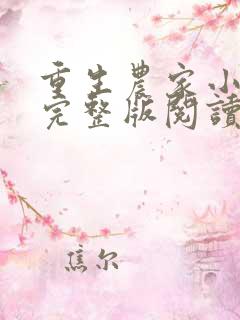 重生農家小
完整版閱讀
焦尔